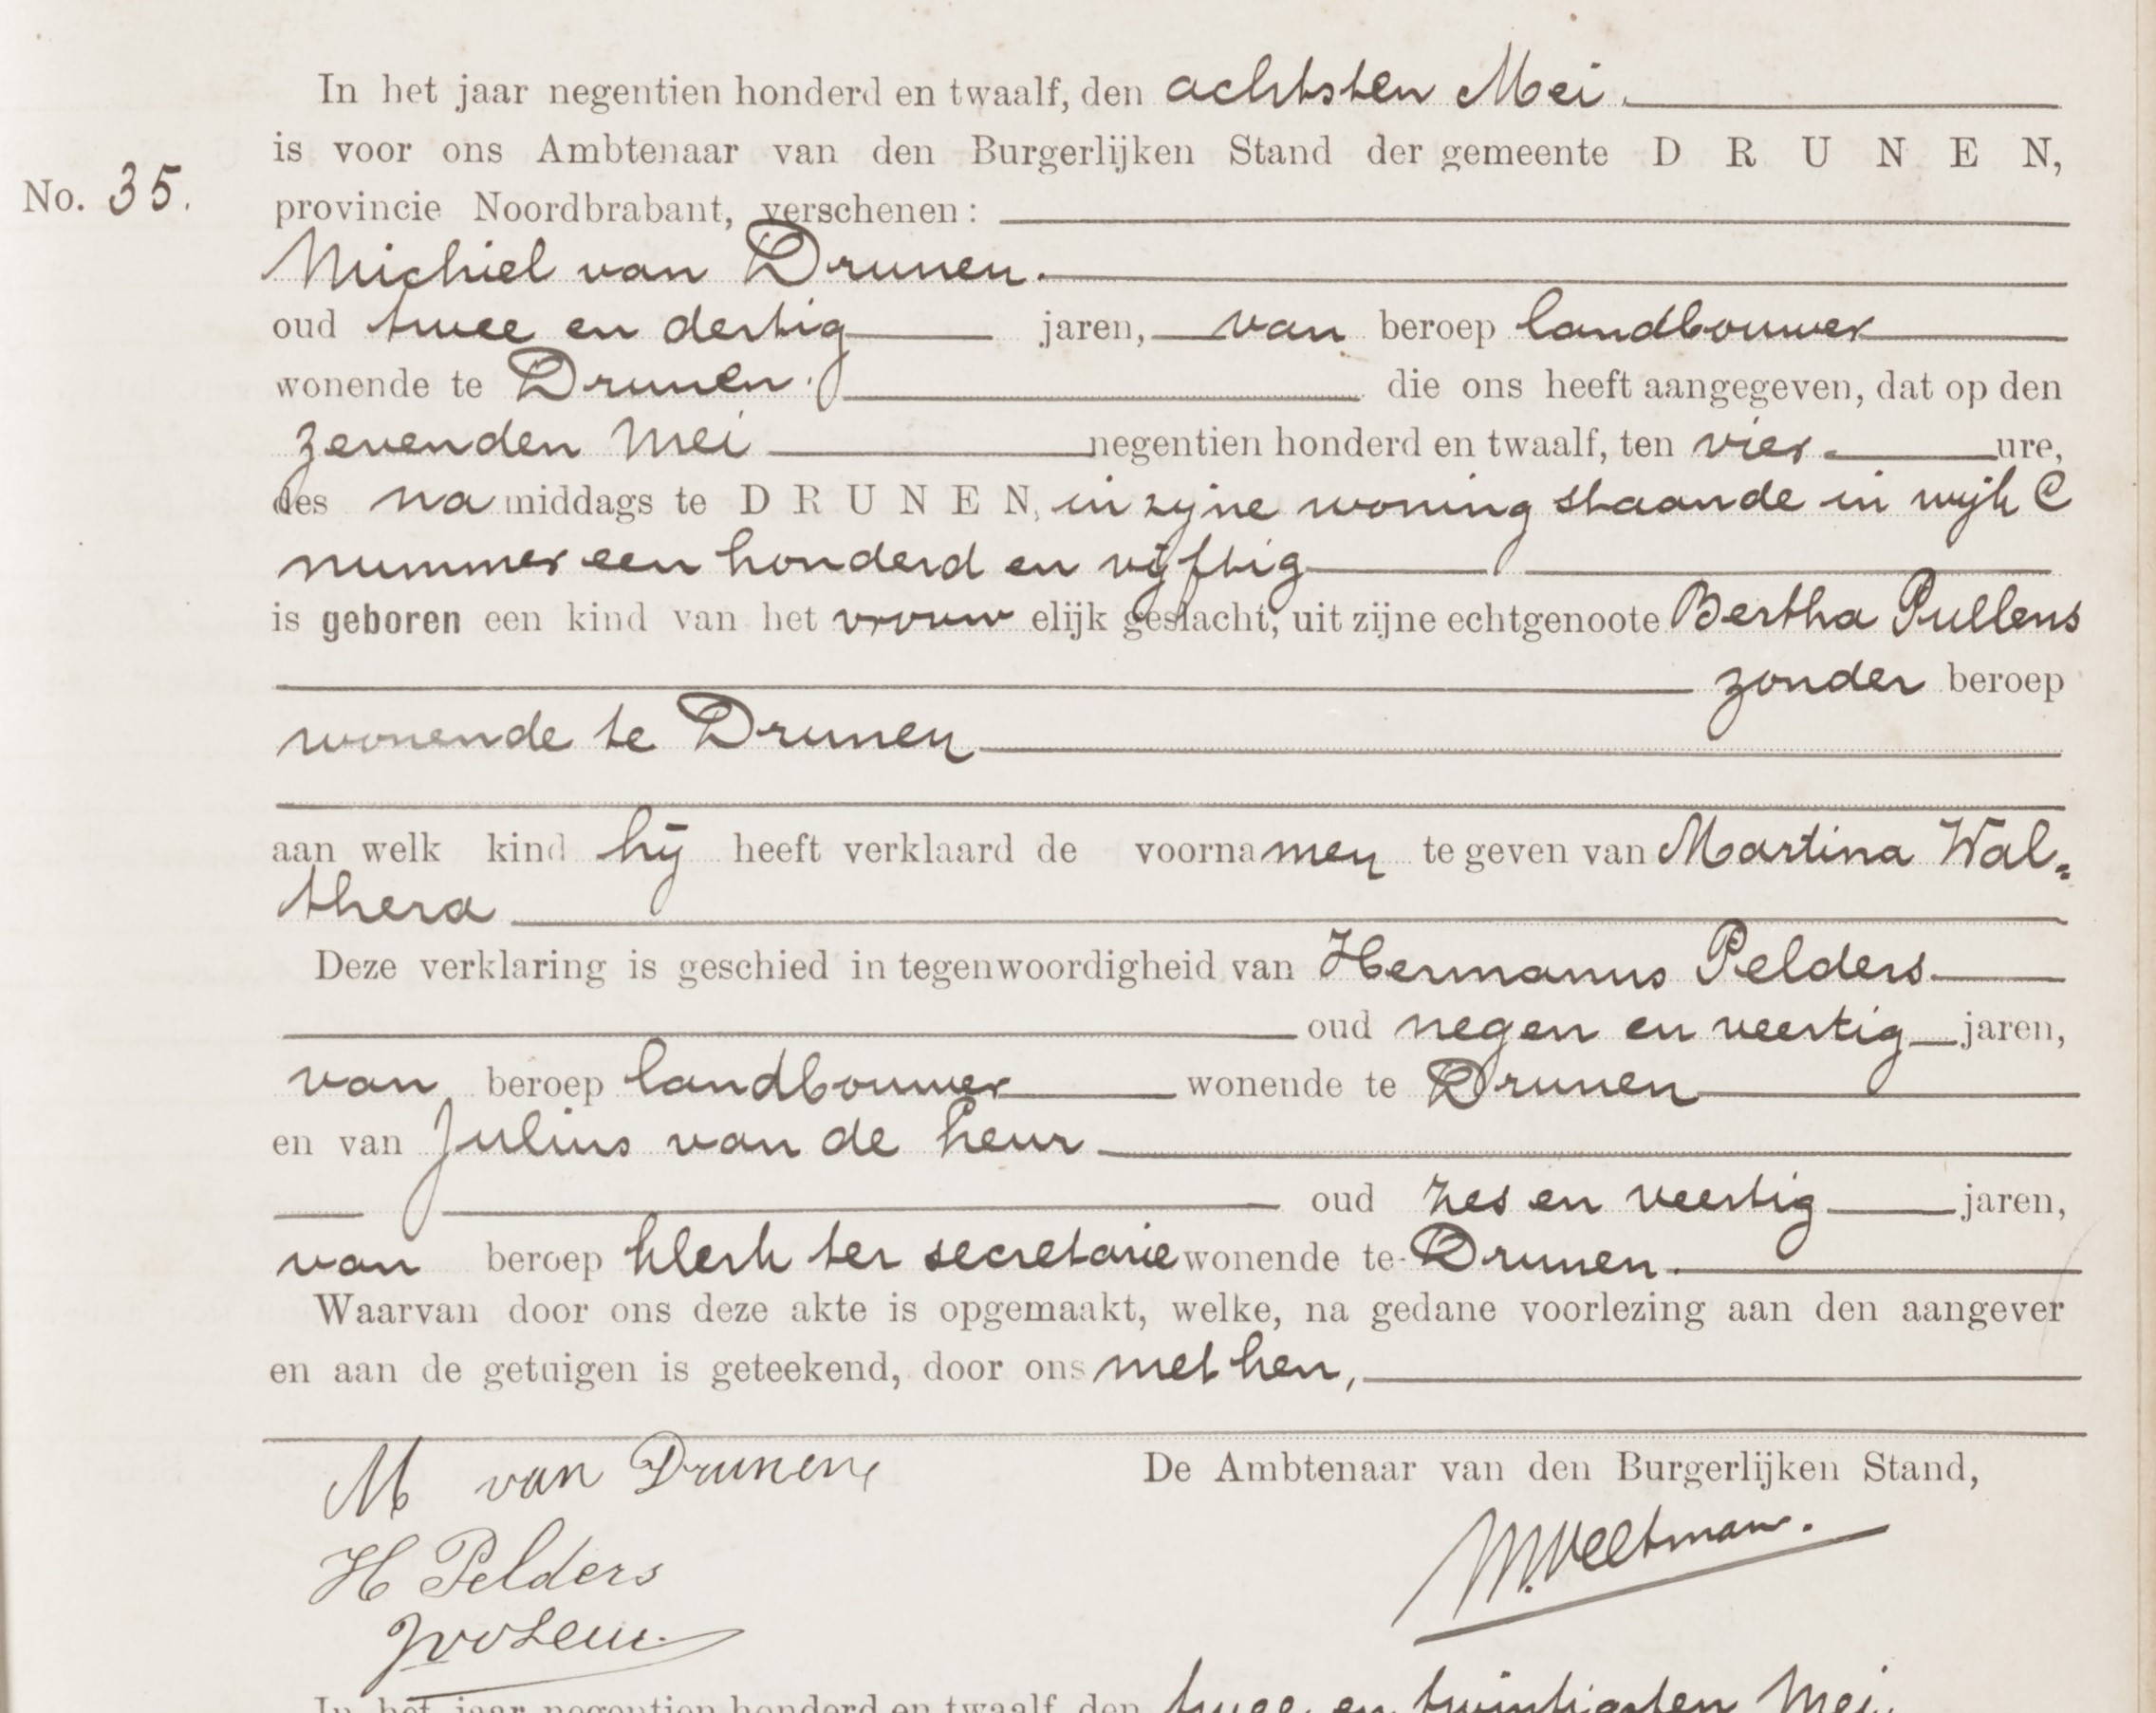 In het jaar negentien honderd en twaalf, den achtsten Mei.
is voor ons Ambtenaar van den Burgerlijken Stand der gemeente D R U N E N,
No. 35.
provincie Noordbrabant, verschenen:
Michiel van Drunen.
oud twee en dertig jaren, van beroep landbouwer
wonende te Drunen. die ons heeft aangegeven, dat op den
zevenden Mei negentien honderd en twaalf, ten vier. ure,
des na middags te D R U N E N, in zijne woning staande in wijk C
nummer een honderd en vijftig
is geboren een kind van het vrouw elijk geslacht, uit zijne echtgenoote Bertha Pullens
zonder beroep
wonende te Drunen
aan welk kind hij heeft verklaard de voornamen te geven van Martina Wal=
thera
Deze verklaring is geschied in tegenwoordigheid van Hermanus Pelders
oud negen en veertig jaren,
van beroep landbouwer wonende te Drunen
en van Julius van de Heur
oud zes en veertig jaren,
van beroep klerk ter secretarie wonende te Drunen.
Waarvan door ons deze akte is opgemaakt, welke, na gedane voorlezing aan den aangever
en aan de getuigen is geteekend, door ons met hen,
M van Drunen,
De Ambtenaar van den Burgerlijken Stand,
H Pelders
M. Veltman.
In het jaar negentien honderd en twaalf, den twee en twintigsten Mei.